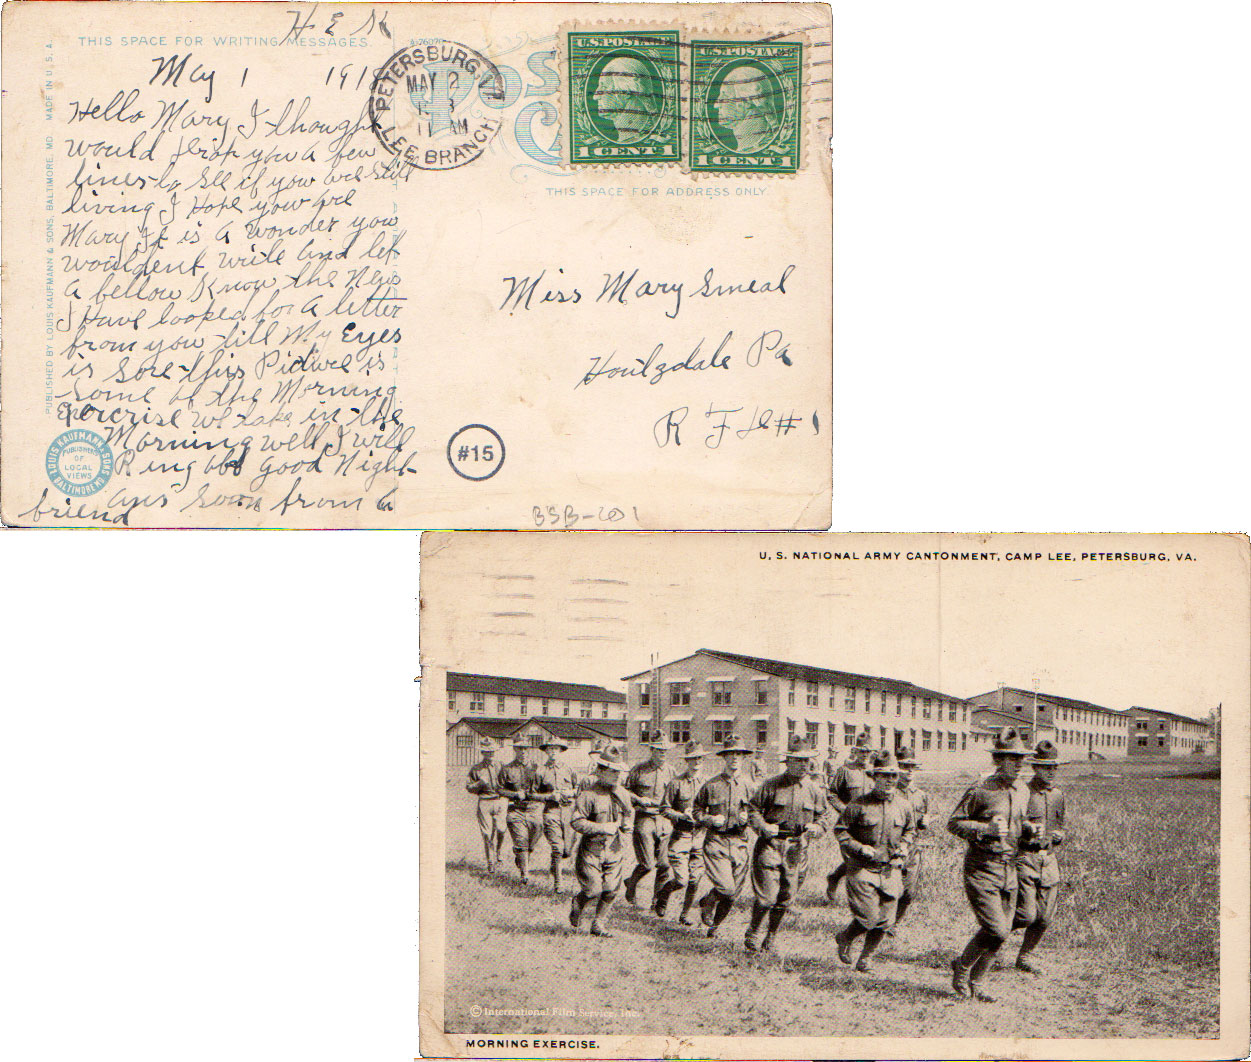 H E K
THIS SPACE FOR WRITING MESSAGES.
A-76090
May 1 1918
Hello Mary I thought
would drop you a few
lines to see if you are still
living I Hope you are
Mary It is a wonder you
wouldent write and let
a fellow Know the News
I Have looked for a letter
from you till My Eyes
is sore this Picture is
some of the Morning
Exercise we take in the
Morning well I will
Ring off good Night
ans soon from a
friend
MADE IN U.S.A.
PUBLISHED BY LOUIS KAUFMANN & SONS, BALTIMORE, MD.
LOUIS KAUFMANN & SONS
BALTIMORE MD.
PUBLISHERS
OF
LOCAL
VIEWS
PETERSBURG, VA.
MAY 2
11 AM
LEE BRANCH
U.S. POSTAGE
1 CENT 1
U.S. POSTAGE
1 CENT 1
THIS SPACE FOR ADDRESS ONLY.
Miss Mary Smeal
Houtzdale Pa
R F D # 1
#15
BSB-201
U. S. NATIONAL ARMY CANTONMENT, CAMP LEE, PETERSBURG, VA.
© International Film Service, Inc.
MORNING EXERCISE.